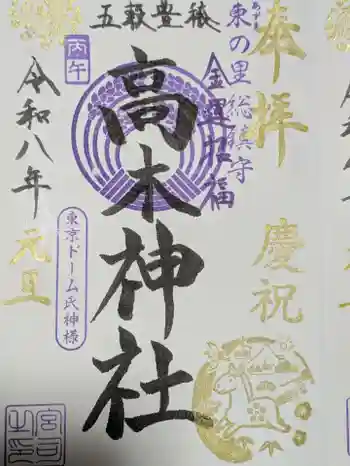 奉拝
慶祝
東の里総鎮守
あずま
金運招福
五穀豊穣
高木神社
丙午
令和八年
元旦
東京ドーム氏神様